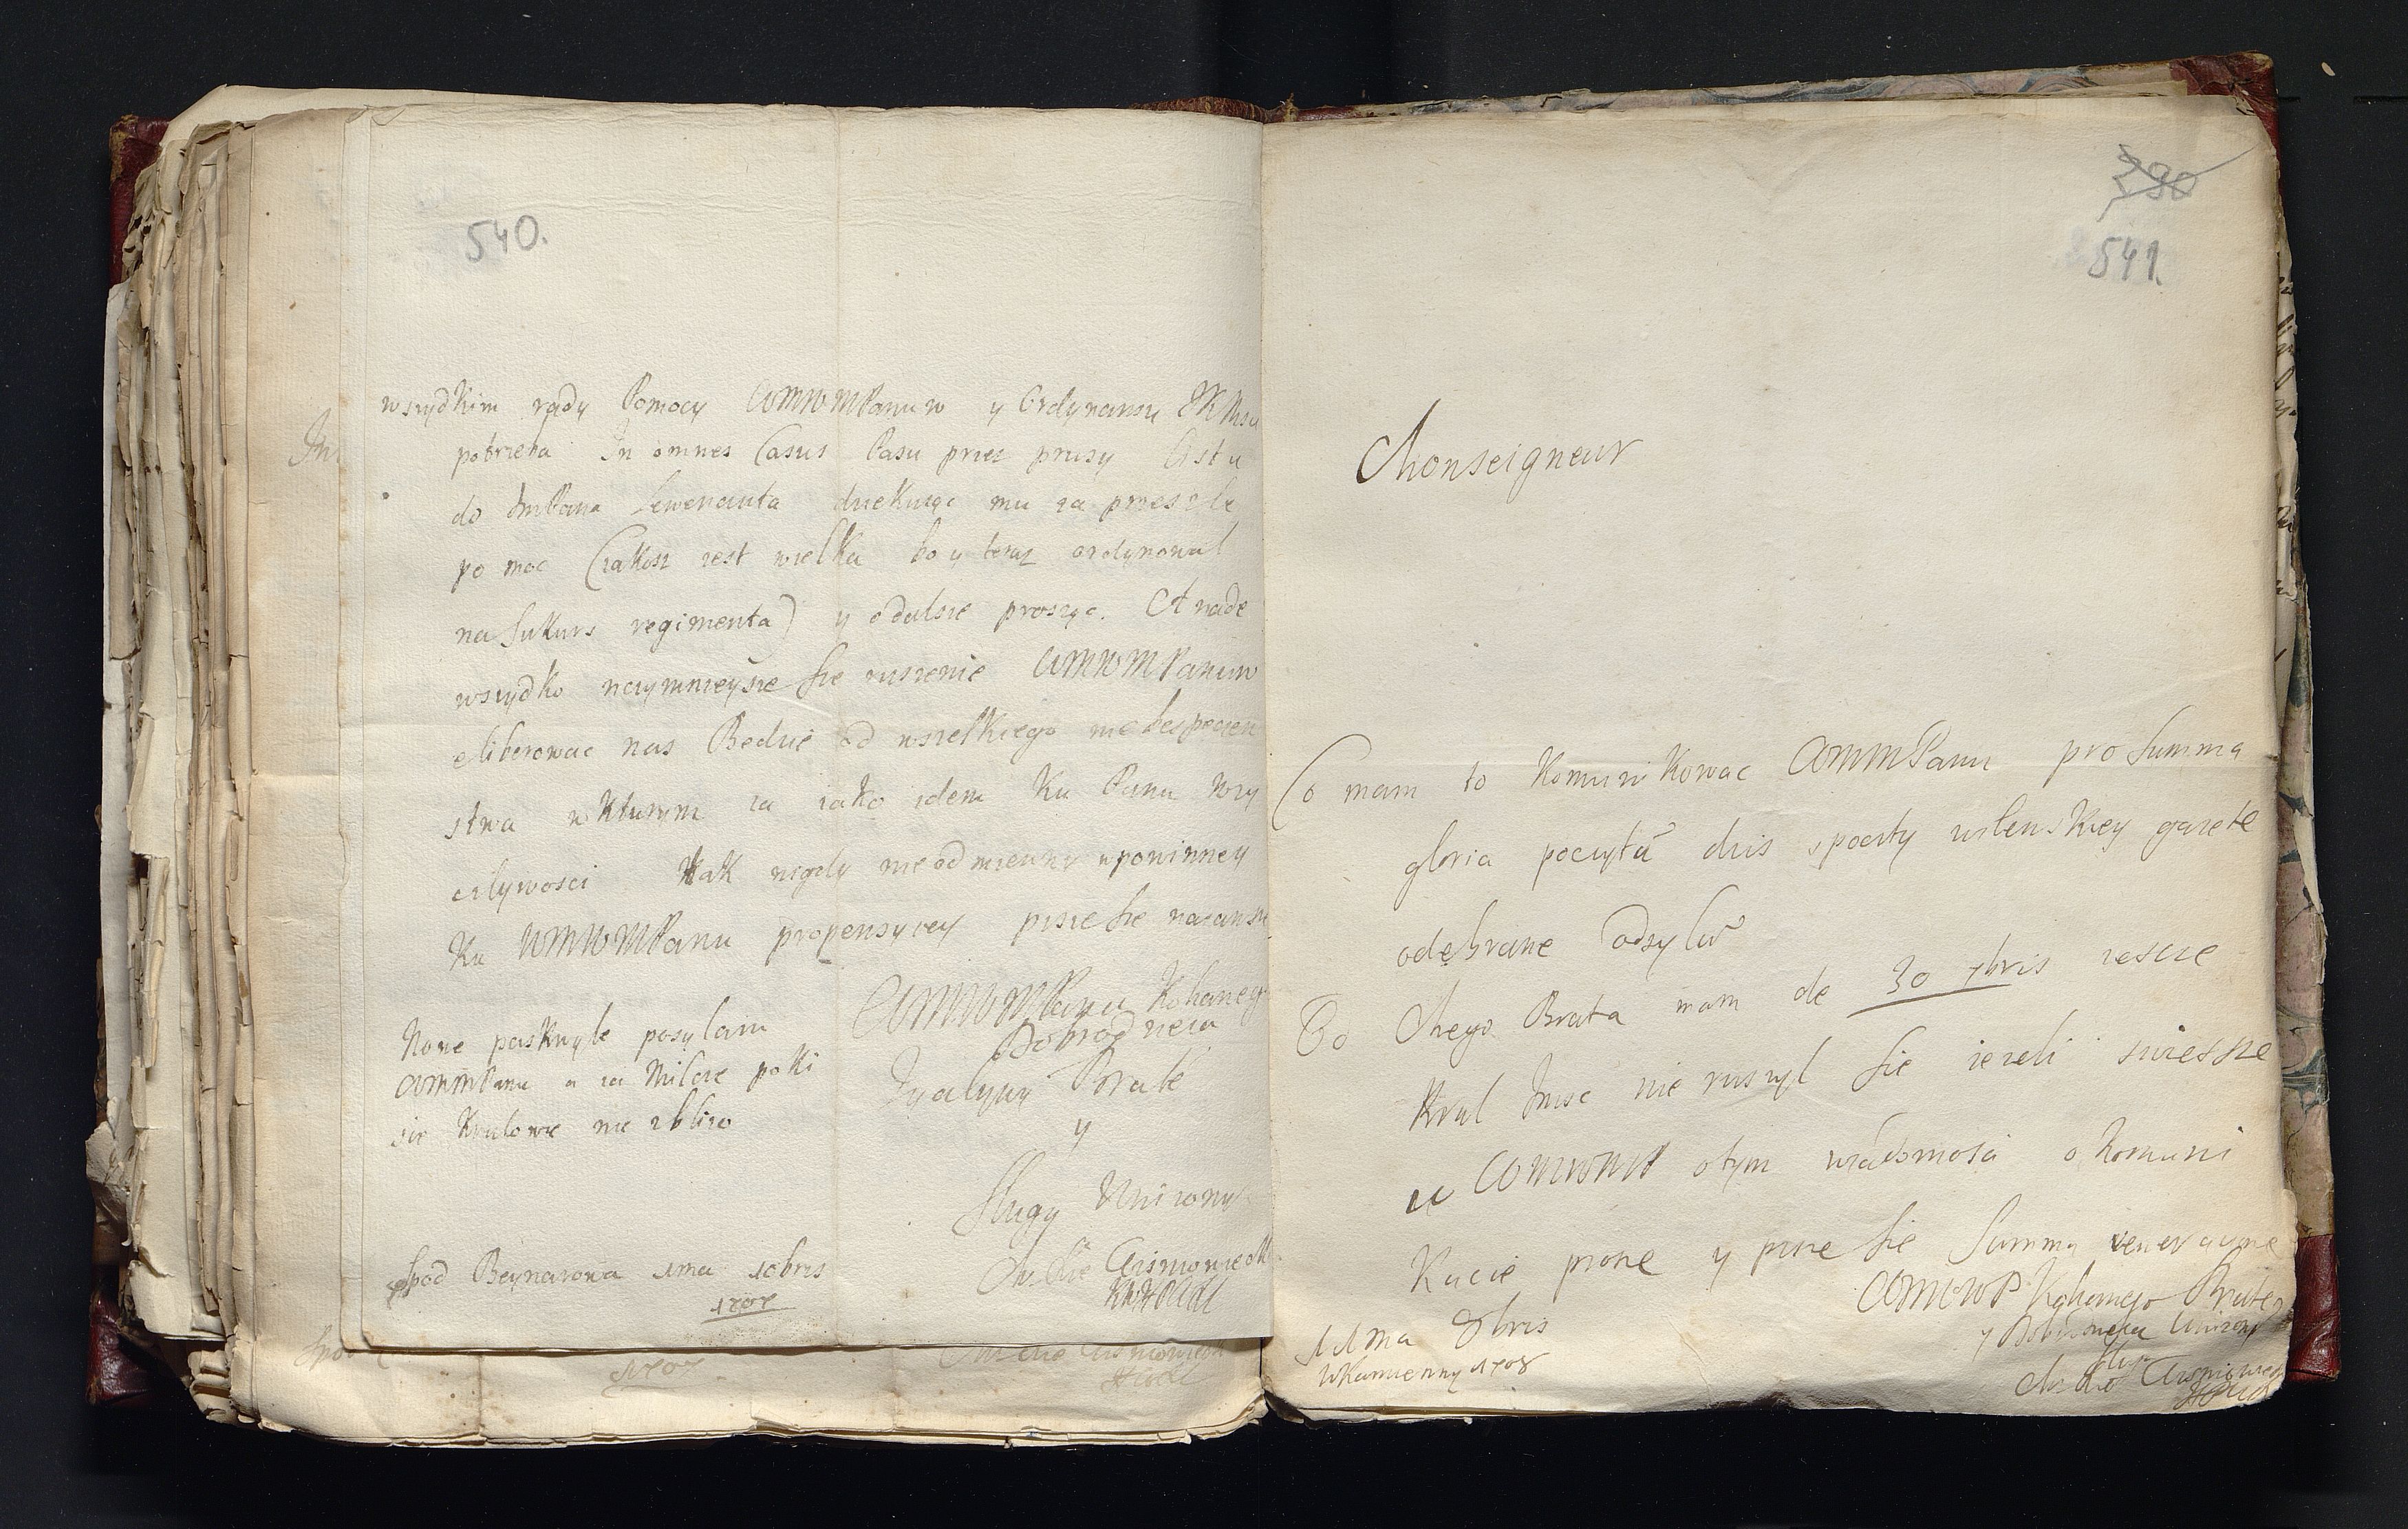 540.
wszydkim rady Pomocy WMWMPanuw y Ordynansu
potrzeba In omnes Casus Pasu przez prusy Listu
do ImPana Lewenauta dziekuiąc mu za przeszle
po moc (iakosz iest wielka bo y teraz ordynowal
na Sukurs regimenta) y odalsze prosząc. A nade
wszydko naymnieysze sie ruszenie WMWMPanuw
eliberowac nas Bedzie od wszelkiego niebespieczen
stwa w kturym ia iako idem Ku Panu wży
czlywosci tak nigdy nieodmienny w powinney
Ku WMWMPanu propensyiey pisze sie nazawsze
WMWMPana Kohanego
Dobrodzieia
Zyczlywy Brate
y
Sługy Unizony
Wisniowiecki
None paskwyle posylam
WMMPanu a za Milcze poki
sie Krulowie nie zbliżo
Spod Beynarowa 1ma 10bris
1707
1707
390
541.
Monseigneur
Co mam to Komunikowac WMMPanu pro Summa
gloria poczytā dzis spoczty wilenskiey gazete
odebrane odsylā
Do Mego Brata mam de 30 7bris iescze
Krul Imsc nie ruszyl sie iezeli swiesze
u WMWMP otym wiadomosci o Komuni
Kacie prosze y pisze sie Summą veneracyine
WMMWP Kohanego Brata
y Dobrodzieia Unizony
Sługa
Wisniowiecki
11ma 8bris
WKamienny 1708